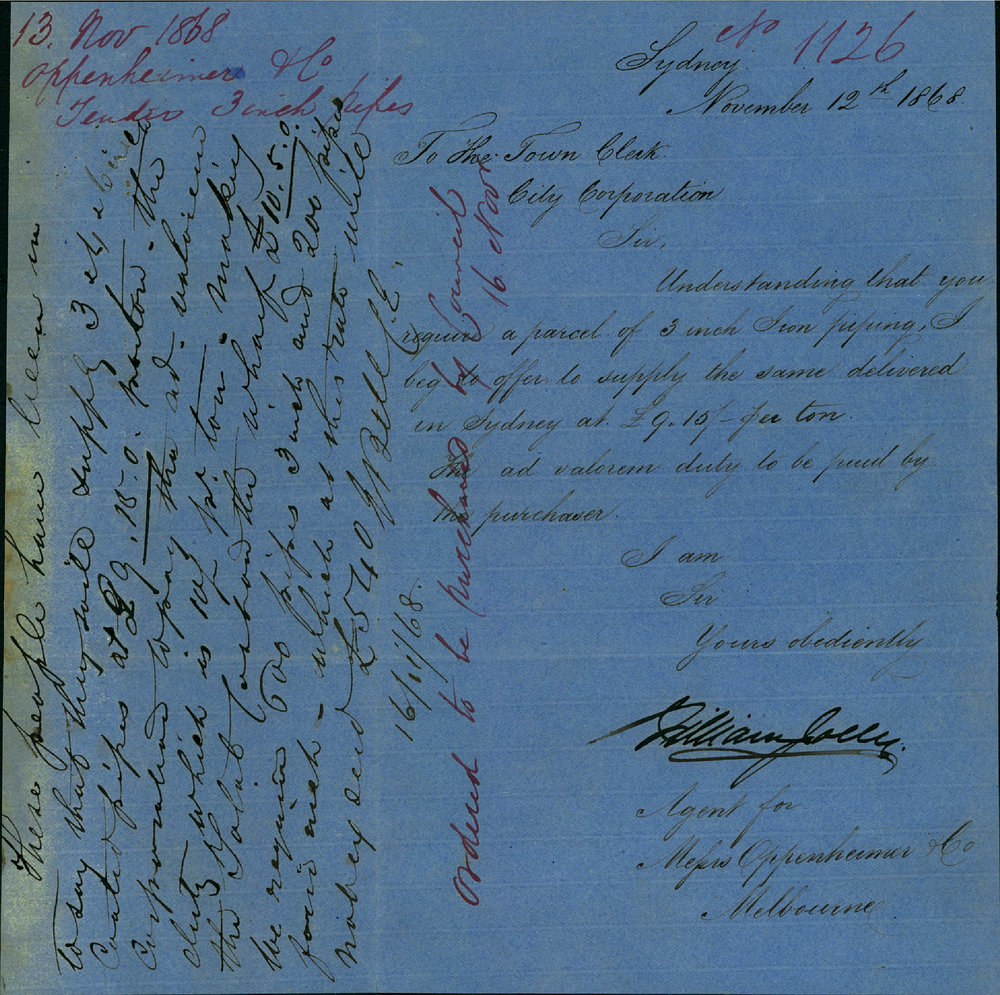 13. Nov 1868
Oppenheimer & Co
Tender 3 inch pipes
No 1126
Sydney.
November 12th 1868.
To The Town Clerk.
City Corporation
Sir,
Understanding that you
require a parcel of 3 inch Iron piping, I
beg to offer to supply the same delivered
in Sydney at £9.15/- per ton.
The ad valorem duty to be paid by
the purchaser.
I am
Sir
Yours obediently
William Jolly.
Agent for
Messrs Oppenheimer & Co
Melbourne.
Ordered to be purchased by Council
16 Nov
These people have been in
to say that they will supply 3 & 4 inch
Coated pipes at £9.15.0. per ton - the
Corporation to pay the ad. valorem
duty which is 10/ pr ton - making
the Total Cost on the wharf £10.5.0.
We require 600 pipes 3 inch and 200 pipes
four inch - which at this rate will
not exceed £540 J BELL C.E.
16/11/68.